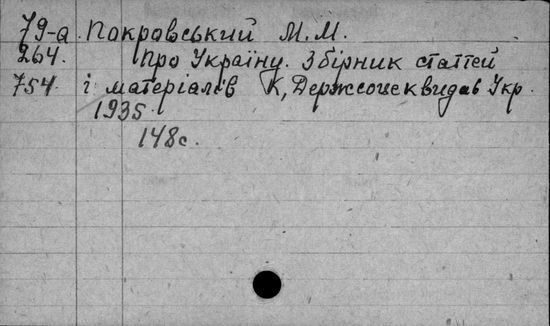 79-а. Покровський М. М.
264. Про Україну. Збірник статтей
754. і матеріалів К, Держсоцеквидав Укр.
1935.
148с.